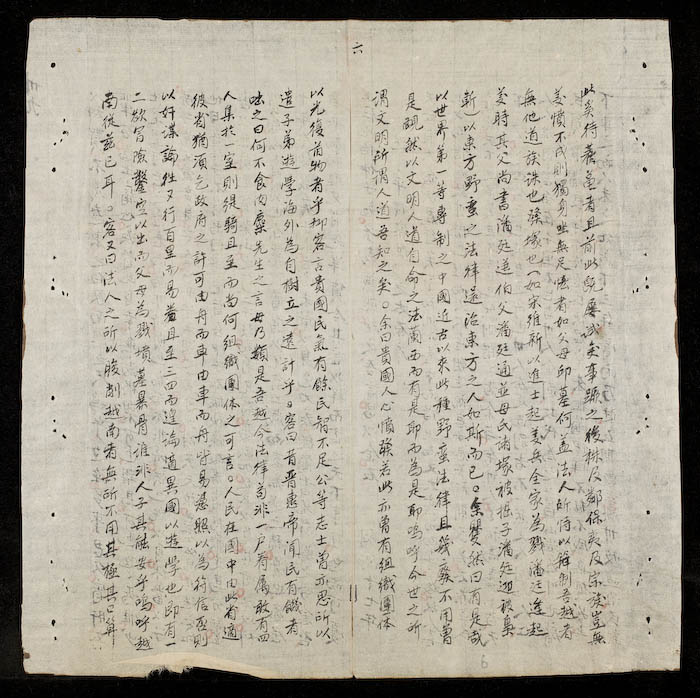 六
此奚待蓍龜者且前此既屢試矣事蹶之後株及鄰保夷及宗族豈無
義憤不成則獨身
無他道族誅也發塚也(如宋維新以進士起義兵全家為戮潘廷逢起
義時其父尚書潘廷選伯父潘廷通並母氏諸塚被掘子潘廷迎被梟
斬)以東方野蠻之法律還治東方之人如斯而已。余瞿然曰有是哉
以世界第一等專制之中國近古以來此種野蠻法律且幾廢不用曾
是靦然以文明人道自命之法蘭西而有是耶而為是耶嗚呼今世之所
謂文明所謂人道吾知之矣。余曰貴國人心憤發若此亦曾有組織團体
以光復舊物者乎抑客言貴國民氣有餘民智不足公等志士曾亦思所以
遣子弟遊學海外為自樹立之遠計乎。客曰昔晉惠帝聞民有饑者
咄之曰何不食肉糜先生之言毋乃類是吾越今法律苟非一戶眷屬敢有四
人集於一室則緹騎且至而尚何組織團体之可言。人民在國中由此省適
彼省猶須乞政府之許可由舟而車由車而舟皆易憑照以為符信否則
以奸謀論牲又行百里而易者且至三四而遑論適異國以遊學也即有一
二欲冒險鑿空以出而父母為戮墳墓暴骨誰非人子其能安乎嗚呼越
南從茲已耳。客又曰法人之所以朘削越南者無所不用其極其口算
6